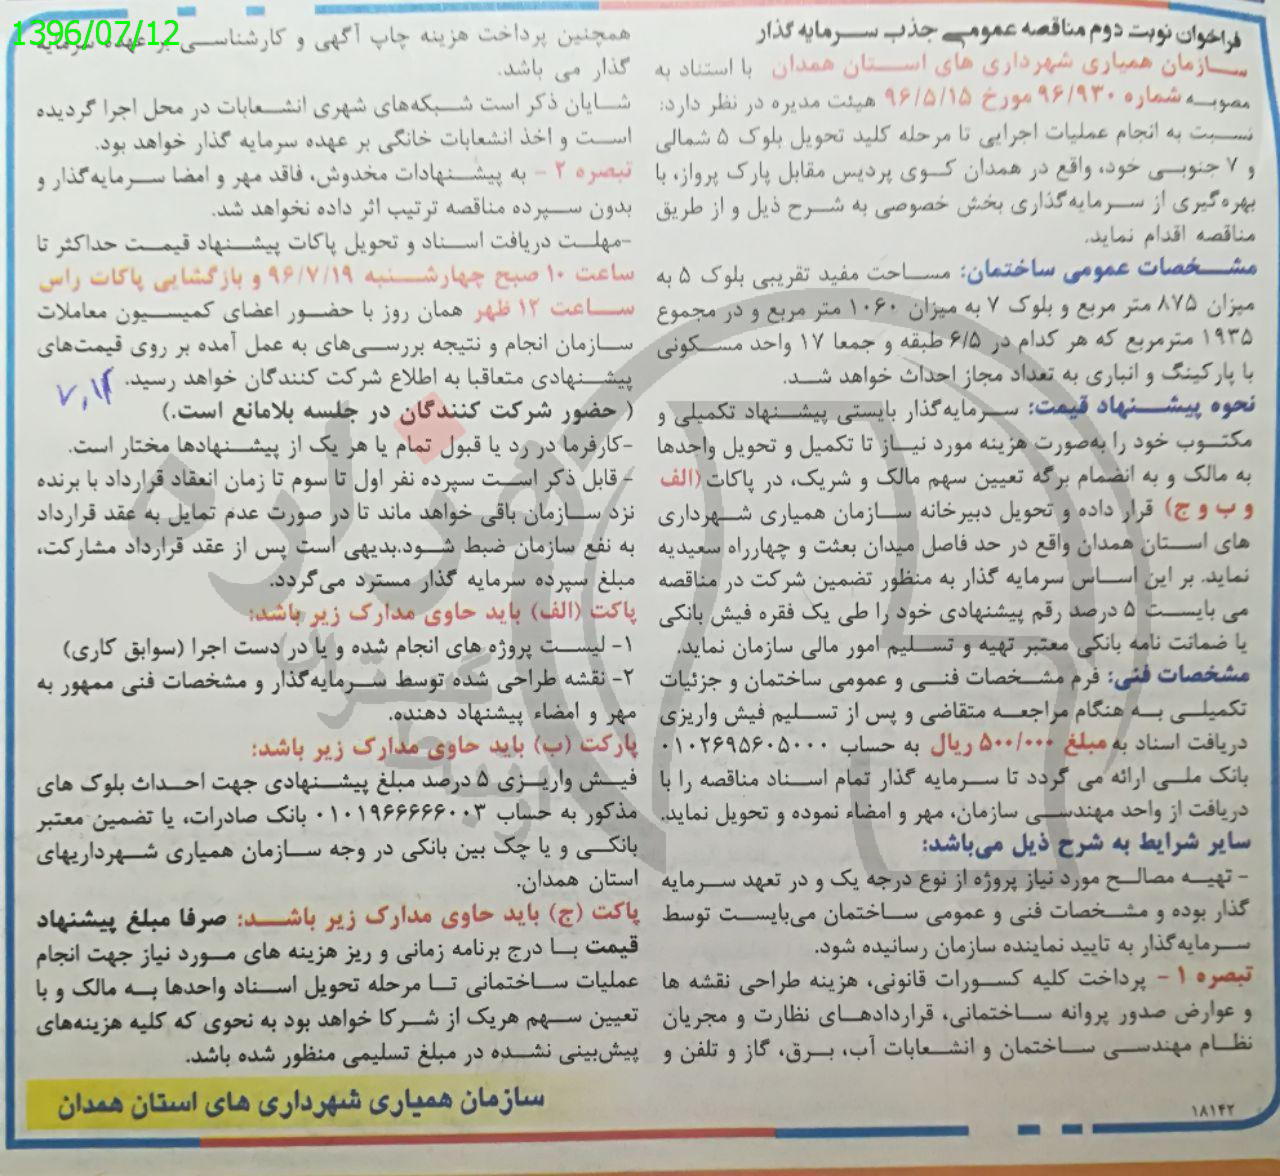 1396/07/12
فراخوان نوبت دوم مناقصه عمومی جذب سرمایه گذار
سازمان همیاری شهرداری های استان همدان با استناد به
مصوبه شماره ۹۶/۹۳۰ مورخ ۹۶/۵/۱۵ هیئت مدیره در نظر دارد:
نسبت به انجام عملیات اجرایی تا مرحله کلید تحویل بلوک ۵ شمالی
و ۷ جنوبی خود، واقع در همدان کوی پردیس مقابل پارک پرواز، با
بهره‌گیری از سرمایه‌گذاری بخش خصوصی به شرح ذیل و از طریق
مناقصه اقدام نماید.
مشخصات عمومی ساختمان: مساحت مفید تقریبی بلوک ۵ به
میزان ۸۷۵ متر مربع و بلوک ۷ به میزان ۱۰۶۰ متر مربع و در مجموع
۱۹۳۵ مترمربع که هر کدام در ۶/۵ طبقه و جمعا ۱۷ واحد مسکونی
با پارکینگ و انباری به تعداد مجاز احداث خواهد شد.
نحوه پیشنهاد قیمت: سرمایه‌گذار بایستی پیشنهاد تکمیلی و
مکتوب خود را به‌صورت هزینه مورد نیاز تا تکمیل و تحویل واحدها
به مالک و به انضمام برگه تعیین سهم مالک و شریک، در پاکات (الف
و ب و ج) قرار داده و تحویل دبیرخانه سازمان همیاری شهرداری
های استان همدان واقع در حد فاصل میدان بعثت و چهارراه سعیدیه
نماید. بر این اساس سرمایه گذار به منظور تضمین شرکت در مناقصه
می بایست ۵ درصد رقم پیشنهادی خود را طی یک فقره فیش بانکی
یا ضمانت نامه بانکی معتبر تهیه و تسلیم امور مالی سازمان نماید.
مشخصات فنی: فرم مشخصات فنی و عمومی ساختمان و جزئیات
تکمیلی به هنگام مراجعه متقاضی و پس از تسلیم فیش واریزی
دریافت اسناد به مبلغ ۵۰۰/۰۰۰ ریال به حساب ۰۱۰۲۶۹۵۶۰۵۰۰۰
بانک ملی ارائه می گردد تا سرمایه گذار تمام اسناد مناقصه را با
دریافت از واحد مهندسی سازمان، مهر و امضاء نموده و تحویل نماید.
سایر شرایط به شرح ذیل می‌باشد:
- تهیه مصالح مورد نیاز پروژه از نوع درجه یک و در تعهد سرمایه
گذار بوده و مشخصات فنی و عمومی ساختمان می‌بایست توسط
سرمایه‌گذار به تایید نماینده سازمان رسانیده شود.
تبصره ۱ - پرداخت کلیه کسورات قانونی، هزینه طراحی نقشه ها
و عوارض صدور پروانه ساختمانی، قراردادهای نظارت و مجریان
نظام مهندسی ساختمان و انشعابات آب، برق، گاز و تلفن و
همچنین پرداخت هزینه چاپ آگهی و کارشناسی بر عهده سرمایه
گذار می باشد.
شایان ذکر است شبکه‌های شهری انشعابات در محل اجرا گردیده
است و اخذ انشعابات خانگی بر عهده سرمایه گذار خواهد بود.
تبصره ۲ - به پیشنهادات مخدوش، فاقد مهر و امضا سرمایه‌گذار و
بدون سپرده مناقصه ترتیب اثر داده نخواهد شد.
-مهلت دریافت اسناد و تحویل پاکات پیشنهاد قیمت حداکثر تا
ساعت ۱۰ صبح چهارشنبه ۹۶/۷/۱۹ و بازگشایی پاکات راس
ساعت ۱۲ ظهر همان روز با حضور اعضای کمیسیون معاملات
سازمان انجام و نتیجه بررسی‌های به عمل آمده بر روی قیمت‌های
پیشنهادی متعاقبا به اطلاع شرکت کنندگان خواهد رسید.
( حضور شرکت کنندگان در جلسه بلامانع است.)
-کارفرما در رد یا قبول تمام یا هر یک از پیشنهادها مختار است.
- قابل ذکر است سپرده نفر اول تا سوم تا زمان انعقاد قرارداد با برنده
نزد سازمان باقی خواهد ماند تا در صورت عدم تمایل به عقد قرارداد
به نفع سازمان ضبط شود.بدیهی است پس از عقد قرارداد مشارکت،
مبلغ سپرده سرمایه گذار مسترد می‌گردد.
پاکت (الف) باید حاوی مدارک زیر باشد:
۱- لیست پروژه های انجام شده و یا در دست اجرا (سوابق کاری)
۲- نقشه طراحی شده توسط سرمایه‌گذار و مشخصات فنی ممهور به
مهر و امضاء پیشنهاد دهنده.
پارکت (ب) باید حاوی مدارک زیر باشد:
فیش واریزی ۵ درصد مبلغ پیشنهادی جهت احداث بلوک های
مذکور به حساب ۰۱۰۱۹۶۶۶۶۶۰۰۳ بانک صادرات، یا تضمین معتبر
بانکی و یا چک بین بانکی در وجه سازمان همیاری شهرداریهای
استان همدان.
پاکت (ج) باید حاوی مدارک زیر باشد: صرفا مبلغ پیشنهاد
قیمت با درج برنامه زمانی و ریز هزینه های مورد نیاز جهت انجام
عملیات ساختمانی تا مرحله تحویل اسناد واحدها به مالک و با
تعیین سهم هریک از شرکا خواهد بود به نحوی که کلیه هزینه‌های
پیش‌بینی نشده در مبلغ تسلیمی منظور شده باشد.
سازمان همیاری شهرداری های استان همدان
۱۸۱۴۲